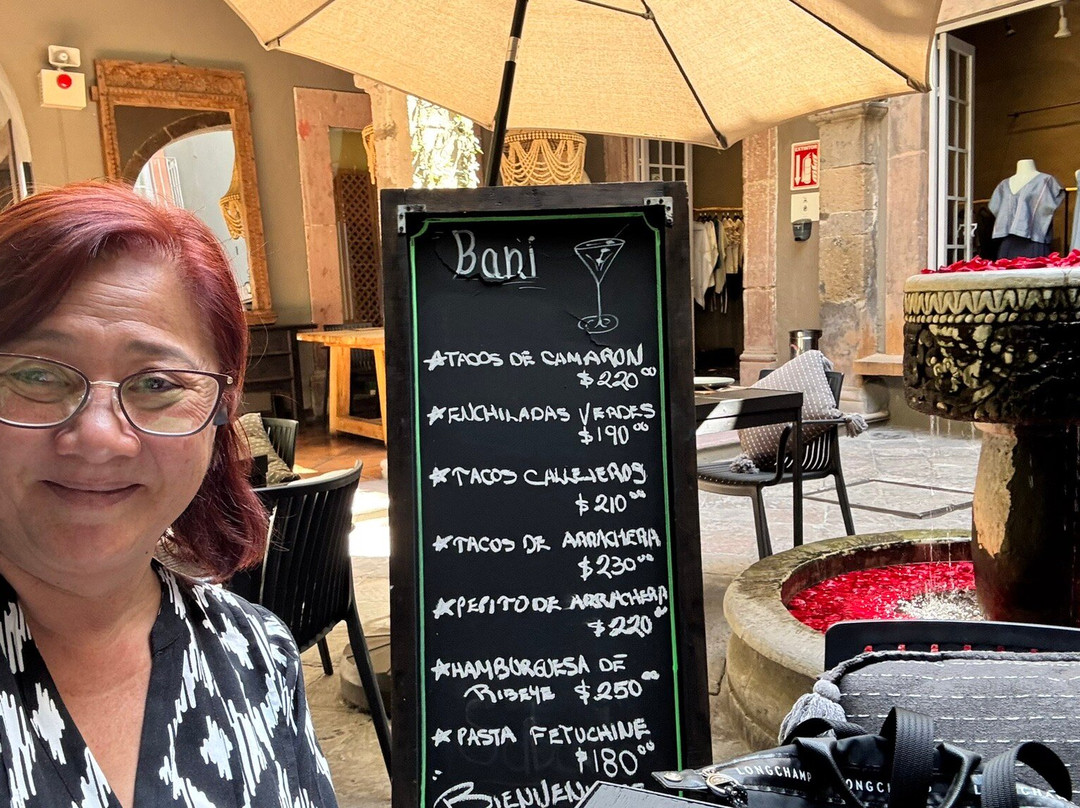 Bani
★TACOS DE CAMARON
$220⁰⁰
★ENCHILADAS VERDES
$190⁰⁰
★TACOS CALLEJEROS
$210⁰⁰
★TACOS DE ARRACHERA
$230⁰⁰
★PEPITO DE ARRACHERA
$220⁰⁰
★HAMBURGUESA DE
RIBEYE $250⁰⁰
★PASTA FETUCHINE
$180⁰⁰
EXTINTOR
LONGCHAMP
LONGCHAMP